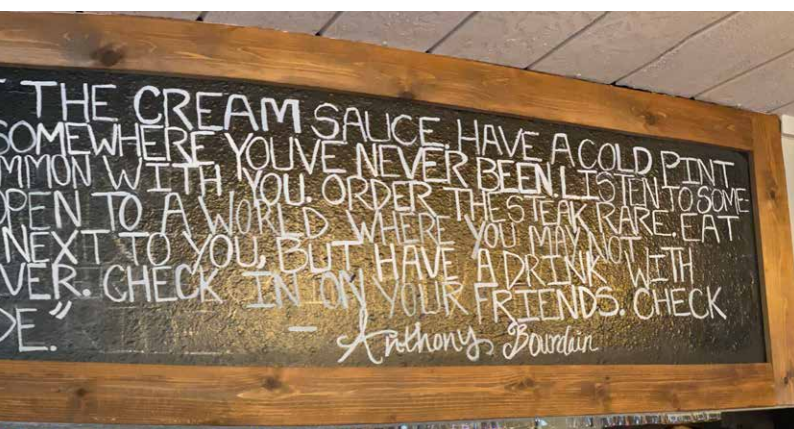 THE CREAM SAUCE. HAVE A COLD PINT
SOMEWHERE YOUVE NEVER BEEN. LISTEN TO SOME-
MMON WITH YOU. ORDER THE STEAK RARE. EAT
OPEN TO A WORLD WHERE YOU MAY NOT
NEXT TO YOU, BUT HAVE A DRINK WITH
VER. CHECK IN ON YOUR FRIENDS. CHECK
DE."
— Anthony Bourdain